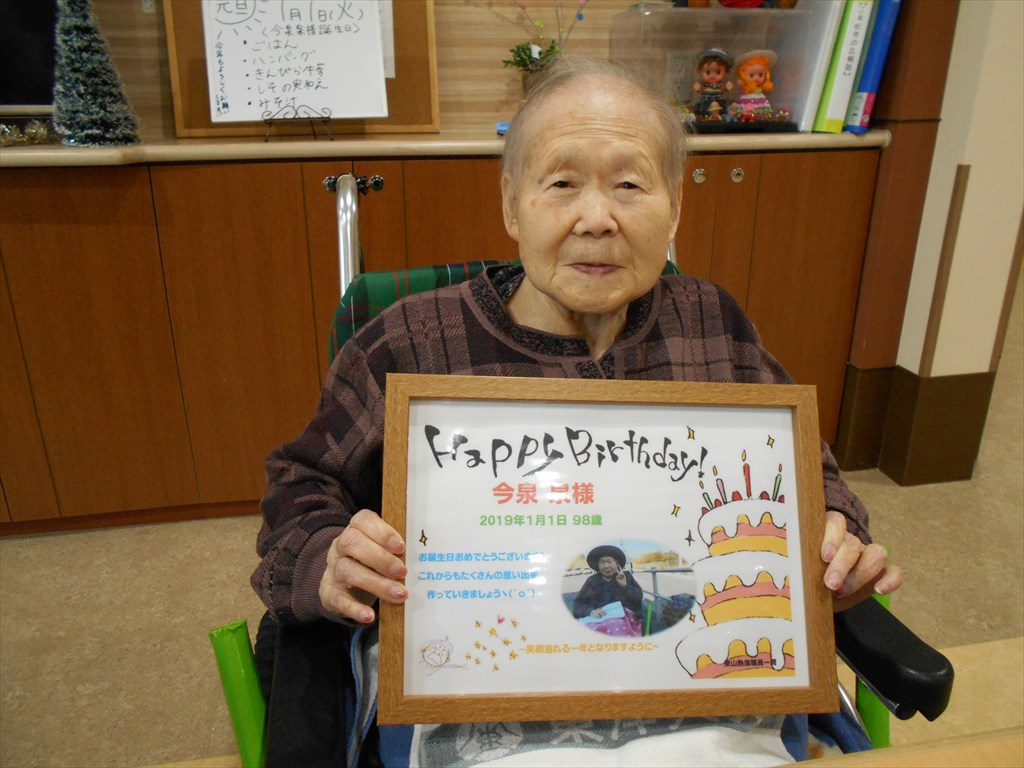 元旦 1月1日(火)
〈今泉泉様誕生日〉
・ごはん
・ハンバーグ
・きんぴら牛蒡
・しその実和え
・みそ汁
今年もよろしくお願い
Happy Birthday!
今泉 泉様
2019年1月1日 98歳
お誕生日おめでとうござい
これからもたくさんの思い出を
作っていきましょうヽ(^o^)
~笑顔溢れる一年となりますように~
山熱海職員一同